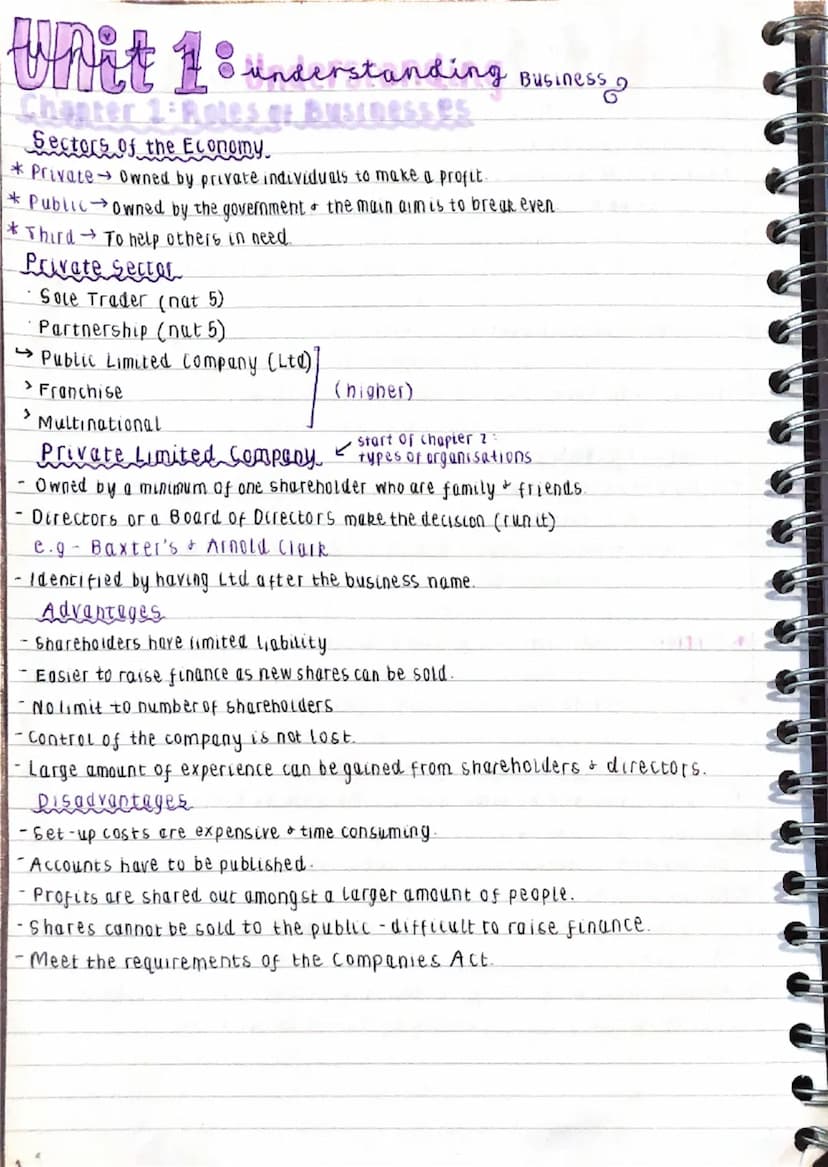 Unit 1: understanding Business
Chapter 1: Roles of Businesses
Sectors of the Economy
* Private → Owned by private individuals to make a profit.
* Public → Owned by the government & the main aim is to break even
* Third → To help others in need.
Private Sector
· Sole Trader (nat 5)
· Partnership (nat 5)
↳ Public Limited Company (Ltd)
> Franchise (higher)
> Multinational
Private Limited Company ↙ start of chapter 2:
types of organisations
- Owned by a minimum of one shareholder who are family & friends.
- Directors or a Board of Directors make the decision (run it)
e.g - Baxter's & Arnold Clark
- Identified by having Ltd after the business name.
Advantages
- Shareholders have limited liability
- Easier to raise finance as new shares can be sold.
- No limit to number of shareholders
- Control of the company is not lost.
- Large amount of experience can be gained from shareholders & directors.
Disadvantages
- Set-up costs are expensive & time consuming.
- Accounts have to be published.
- Profits are shared out amongst a larger amount of people.
- Shares cannot be sold to the public - difficult to raise finance.
- Meet the requirements of the Companies Act.